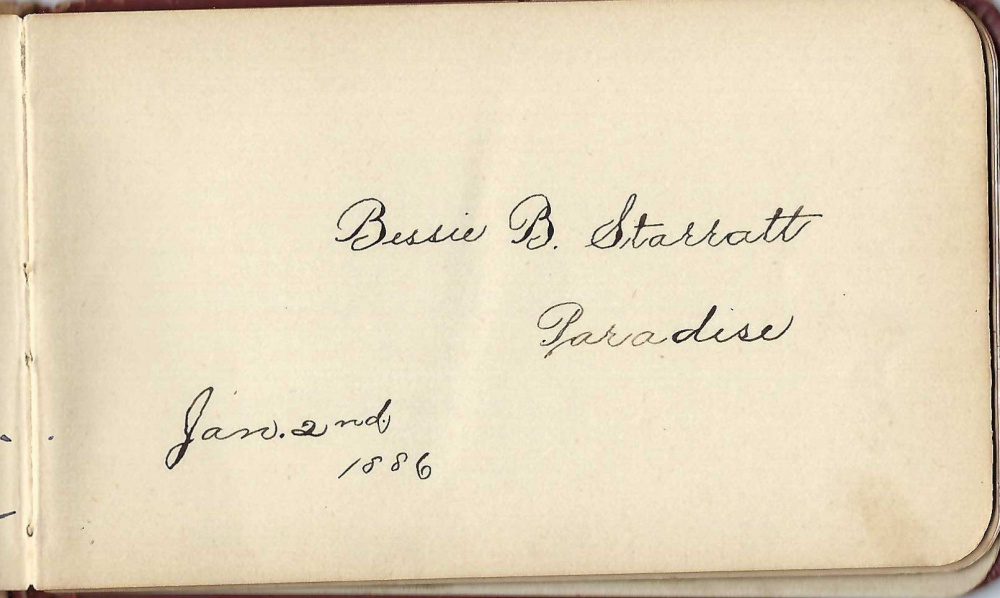 Bessie B. Starratt
Paradise
Jan. 2nd
1886